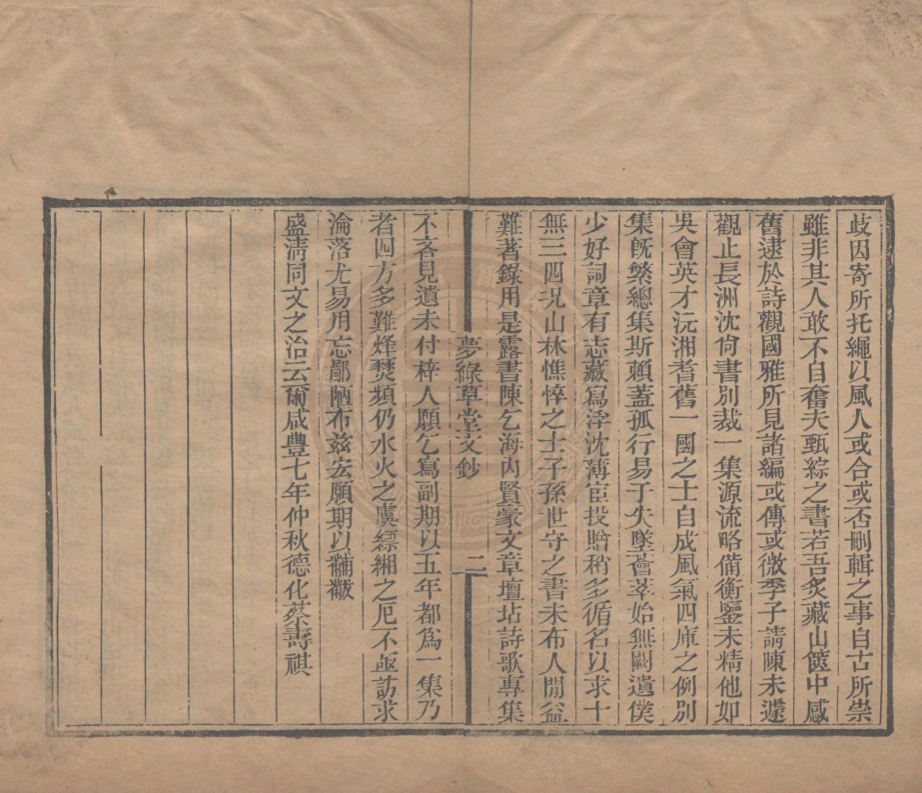 歧因寄所托繩以風人或合或否刪輯之事自古所崇
雖非其人敢不自奮夫甄綜之書若吾炙藏山篋中感
舊逮於詩觀國雅所見諸編或傳或微季子請陳未遑
觀止長洲沈尙書別裁一集源流略備衡鑒未精他如
吳會英才沅湘耆舊一國之士自成風氣四庫之例別
集旣繁總集斯賴蓋孤行易于失墜薈萃始無闕遺僕
少好詞章有志藏寫浮沈薄宦投贈稍多循名以求十
無三四況山林憔悴之士子孫世守之書未布人閒益
難著錄用是露書陳乞海內賢豪文章壇坫詩歌專集
夢綠草堂文鈔 二
不吝見遺未付梓人願乞寫副期以五年都爲一集乃
者四方多難烽燹頻仍水火之虞縹緗之厄不亟訪求
淪落尤易用忘鄙陋布茲宏願期以黼黻
盛淸同文之治云爾咸豐七年仲秋德化蔡壽祺